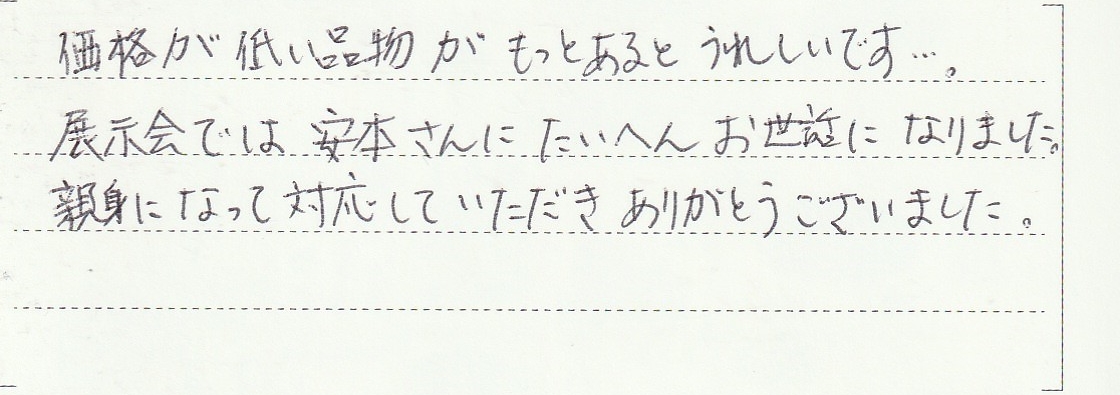 価格が低い品物がもっとあるとうれしいです…。
展示会では安本さんにたいへんお世話になりました。
親身になって対応していただきありがとうございました。